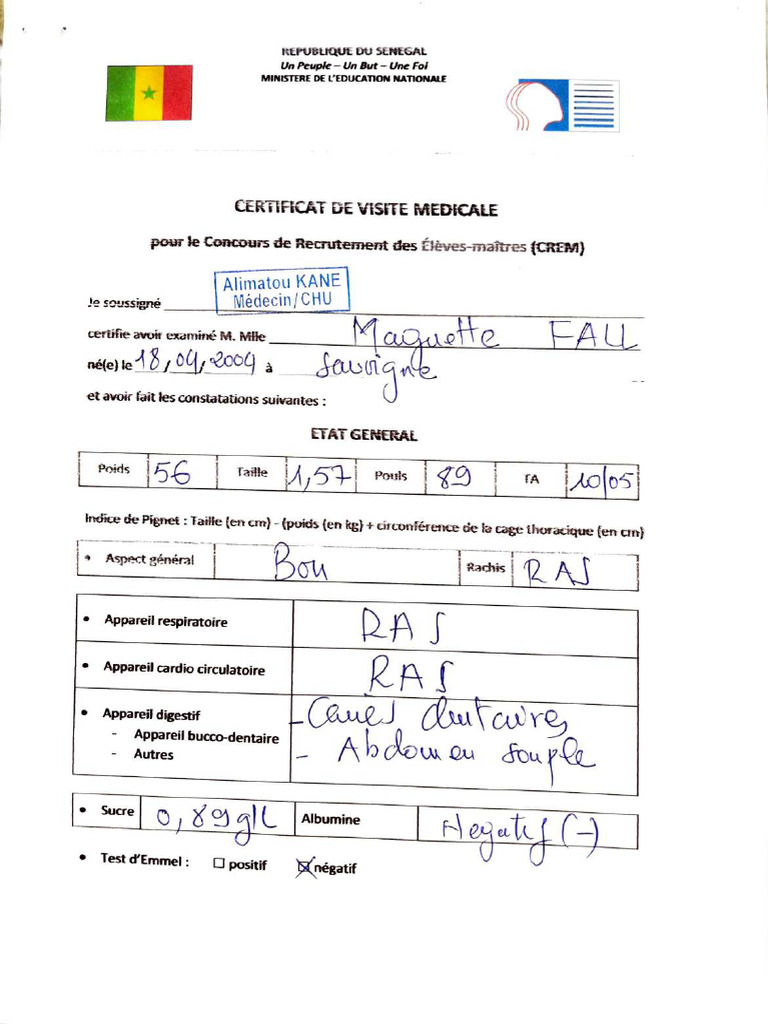 REPUBLIQUE DU SENEGAL
Un Peuple – Un But – Une Foi
MINISTERE DE L'EDUCATION NATIONALE
CERTIFICAT DE VISITE MEDICALE
pour le Concours de Recrutement des Élèves-maîtres (CREM)
Alimatou KANE
Médecin/CHU
Je soussigné
certifie avoir examiné M. Mlle Maguette FALL
né(e) le 18/04/2004 à Savoigne
et avoir fait les constatations suivantes :
ETAT GENERAL
Poids 56 Taille 1,57 Pouls 89 TA 10/05
Indice de Pignet : Taille (en cm) - (poids (en kg) + circonférence de la cage thoracique (en cm)
• Aspect général Bon Rachis RAS
• Appareil respiratoire RAS
• Appareil cardio circulatoire RAS
• Appareil digestif - Caries dentaires
- Appareil bucco-dentaire - Abdomen souple
- Autres
• Sucre 0,89 g/L Albumine Negatif (-)
• Test d'Emmel : ☐ positif ☒ négatif